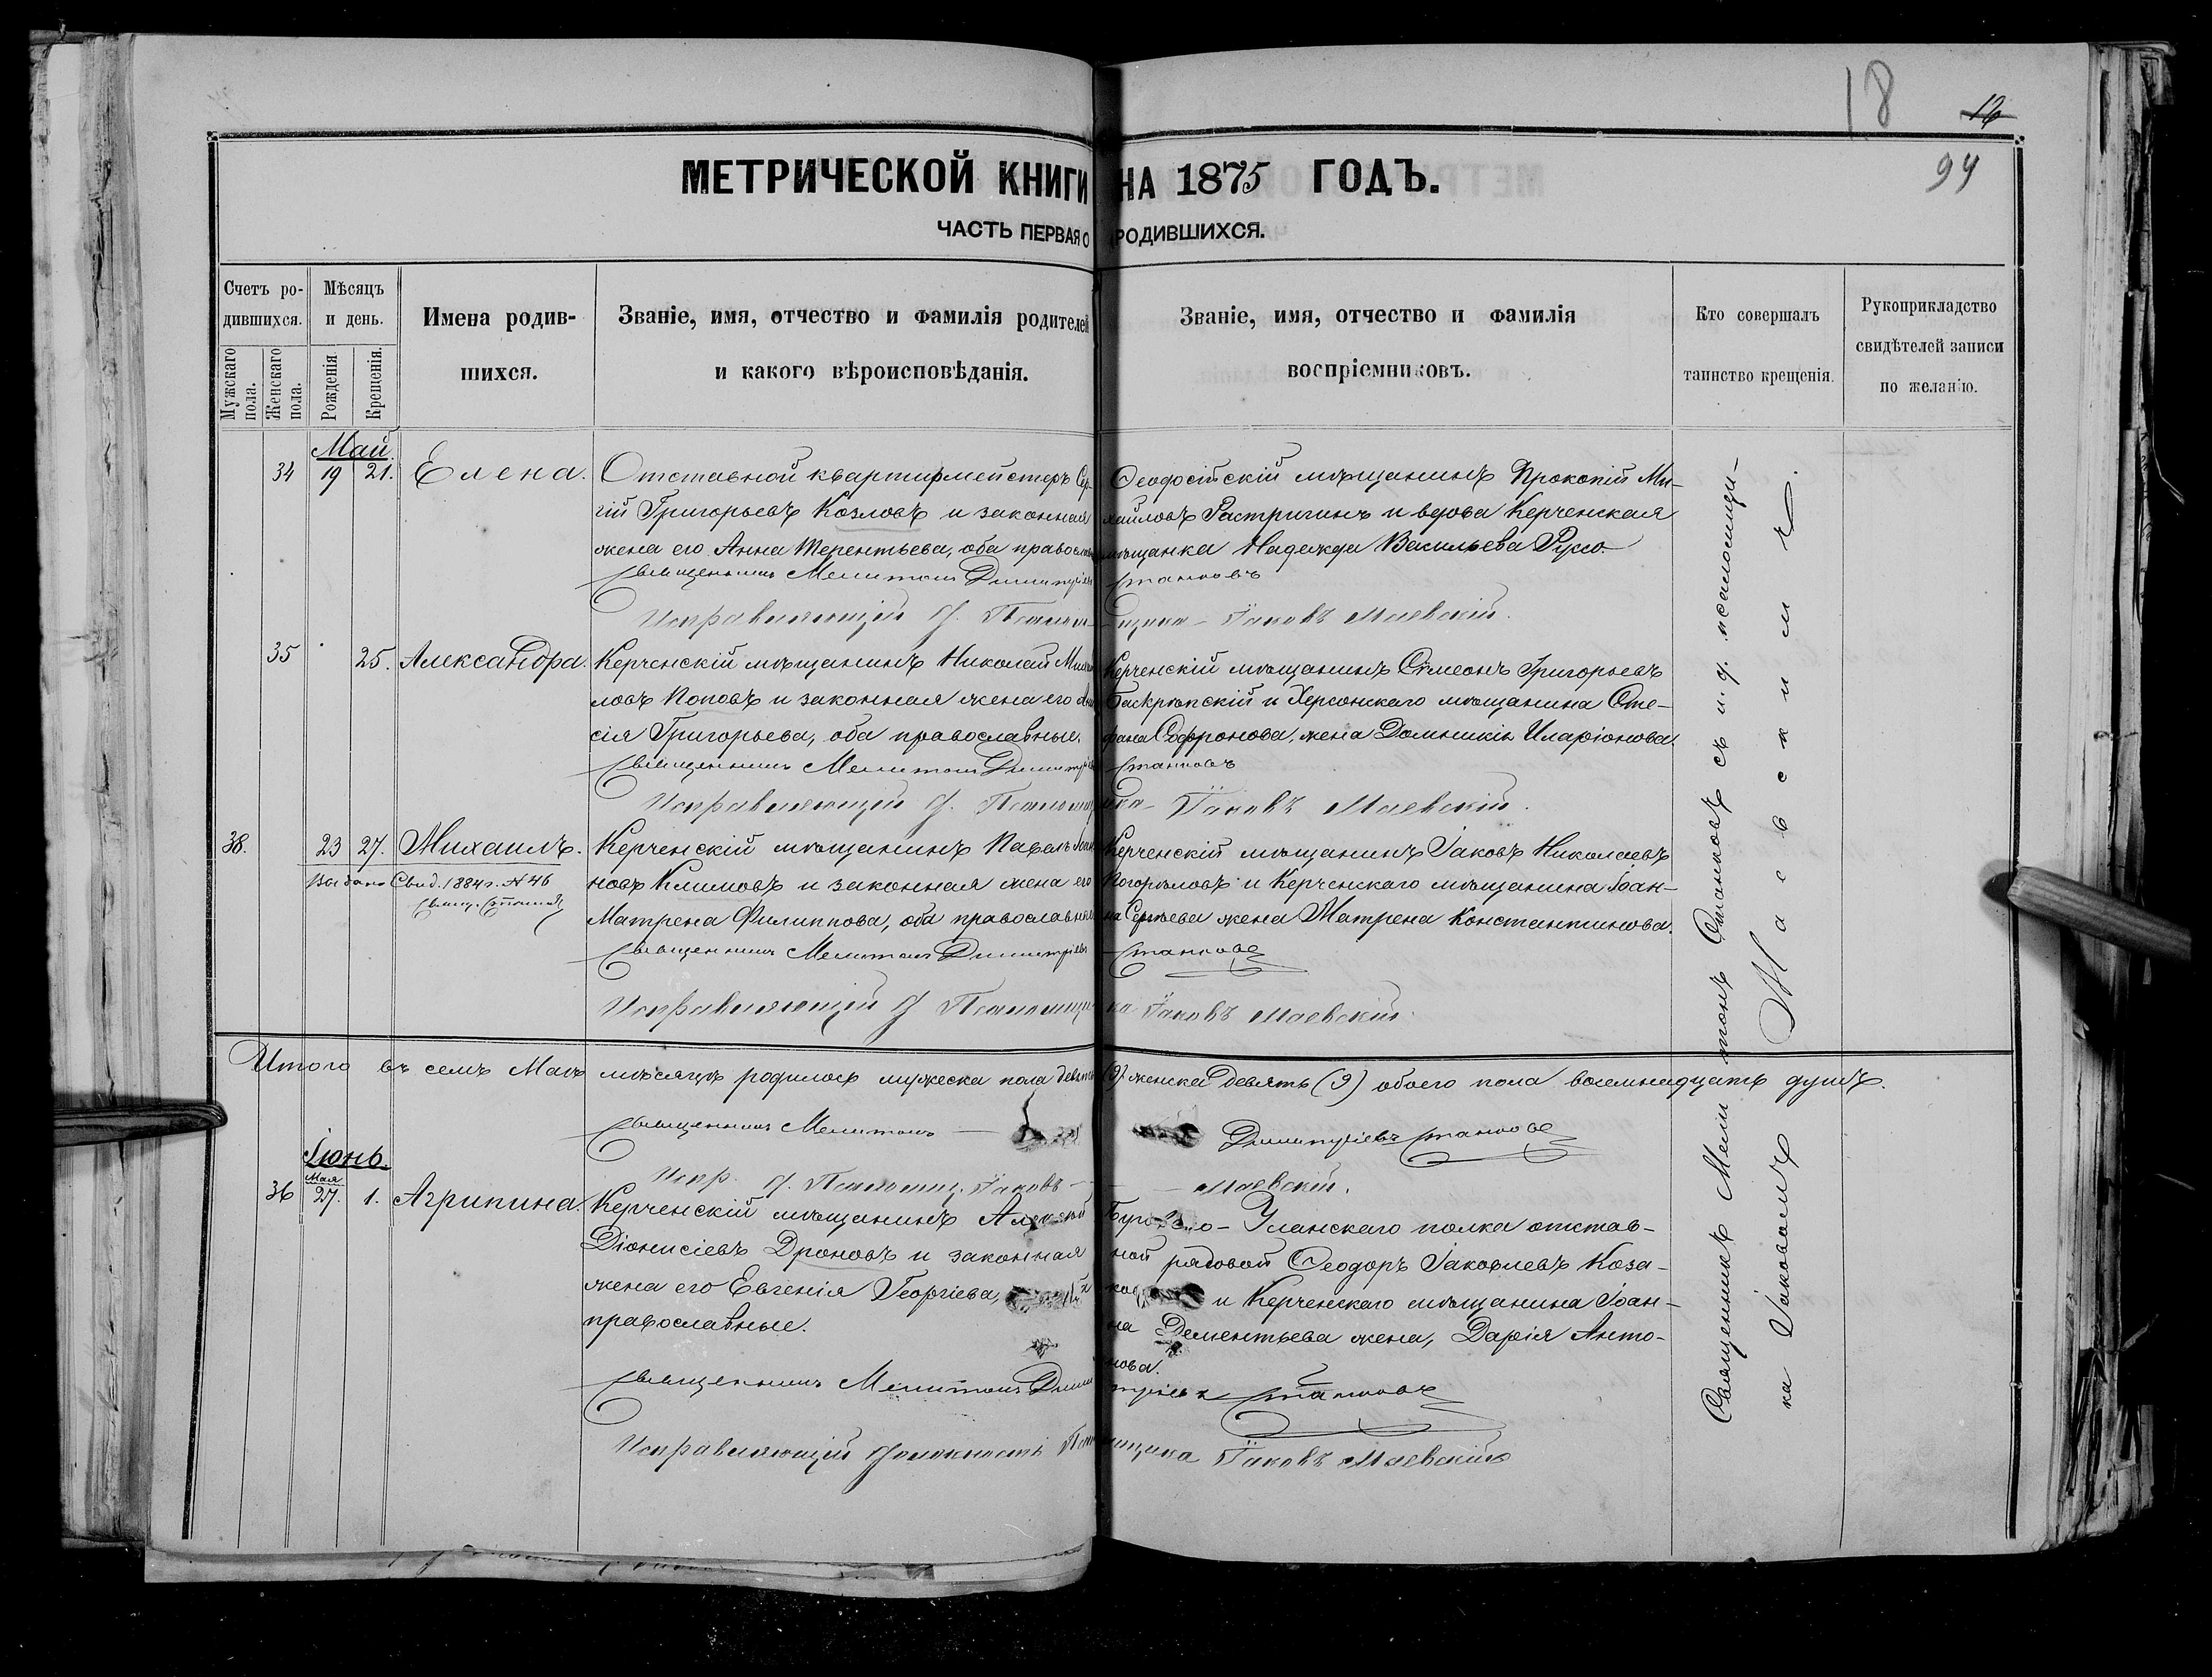 18
12
94
МЕТРИЧЕСКОЙ КНИГИ НА 1875 ГОДЪ.
ЧАСТЬ ПЕРВАЯ О РОДИВШИХСЯ.
Счетъ ро-
дившихся.
Мужскаго пола.
Женскаго пола.
Мѣсяцъ
и день.
Рожденія
Крещенія.
Имена родив-
шихся.
Званіе, имя, отчество и фамилія родителей
и какого вѣроисповѣданія.
Званіе, имя, отчество и фамилія
воспріемниковъ.
Кто совершалъ
таинство крещенія.
Рукоприкладство
свидѣтелей записи
по желанію.
Май.
34 19 21. Елена.
Отставной квартирмейстеръ Сер-
гій Григорьевъ Козловъ и законная
жена его Анна Терентьева, оба правосл
Священникъ Мелитонъ Димитріевъ Станковъ
Исправляющій д. Псалом-щика Іаковъ Маевскій.
Ѳеодосійскій мѣщанинъ Прокопій Ми-
хайловъ Растригинъ и вдова Керченская
мѣщанка Надежда Васильева Руссо.
35 25. Александра.
Керченскій мѣщанинъ Николай Михай
ловъ Поповъ и законная жена его
сія Григорьева, оба православные.
Священникъ Мелитонъ Димитріевъ Станковъ
Исправляющій д. Псаломщика Іаковъ Маевскій.
Керченскій мѣщанинъ Сѵмеонъ Григорьевъ
и Херсонскаго мѣщанина Сте-
фана Софронова, жена Домникія Иларіонова.
38. 23 27. Михаилъ.
Выдано Свид. 1884 г. № 46
Керченскій мѣщанинъ Павелъ Іоан
новъ Климовъ и законная жена его
Матрена Филиппова, оба православные
Священникъ Мелитонъ Димитріевъ Станковъ
Исправляющій д. Псаломщика Іаковъ Маевскій.
Керченскій мѣщанинъ Іаковъ Николаевъ
Погорѣловъ и Керченскаго мѣщанина Іоан-
на Сергѣева жена Матрена Константинова.
Итого въ семъ Маѣ мѣсяцѣ родилось мужеска пола девять (9) женска девять (9) обоего пола восемнадцать душъ.
Священникъ Мелитонъ Димитріевъ Станковъ
Испр. д. Псаломщ. Іаковъ Маевскій.
Іюнь.
Мая
36 27. 1. Агрипина.
Керченскій мѣщанинъ Алексѣй
Діонисіевъ Дроновъ и законная
жена его Евгенія Георгіева,
православные.
Священникъ Мелитонъ Димитріевъ Станковъ
Исправляющій должность Псаломщика Іаковъ Маевскій
Уланскаго полка отстав-
ной рядовой Ѳеодоръ Іаковлевъ Коза-
и Керченскаго мѣщанина Іоан-
на Дементьева жена, Дарія Анто-
нова.
Священникъ Мелитонъ Станковъ съ и. д. псаломщи-
ка Іаковомъ Маевскимъ.